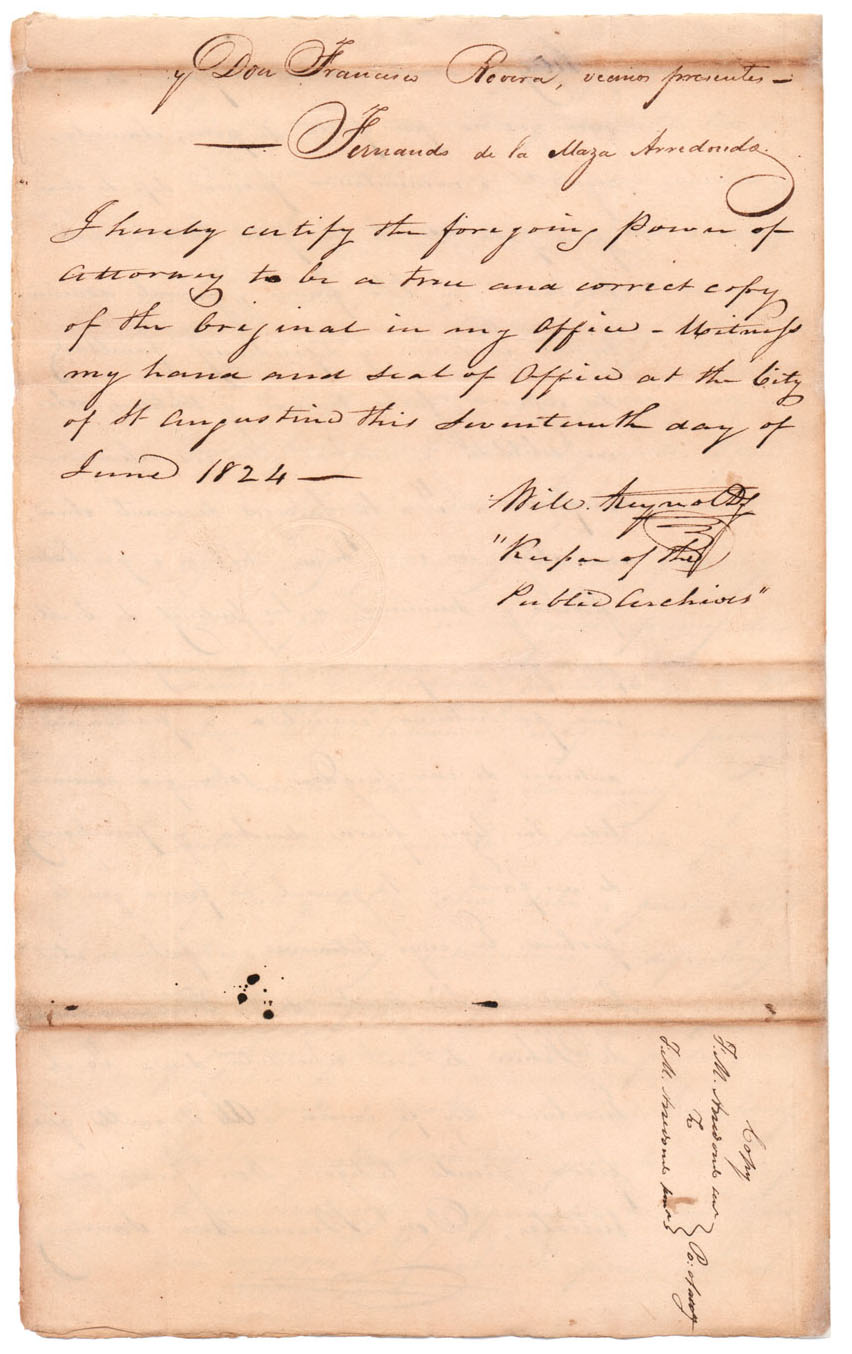 y Don Francisco Rovira, vecinos presentes —
— Fernando de la Maza Arredondo.
I hereby certify the foregoing Power of
attorney to be a true and correct copy
of the Original in my Office – Witness
my hand and Seal of Office at the City
of St Augustine this Seventeenth day of
June 1824 —
Will. Reynolds
"Keeper of the
Public Archives"
Copy
F. M. Arredondo
To
F. M. Arredondo
Po: of atty